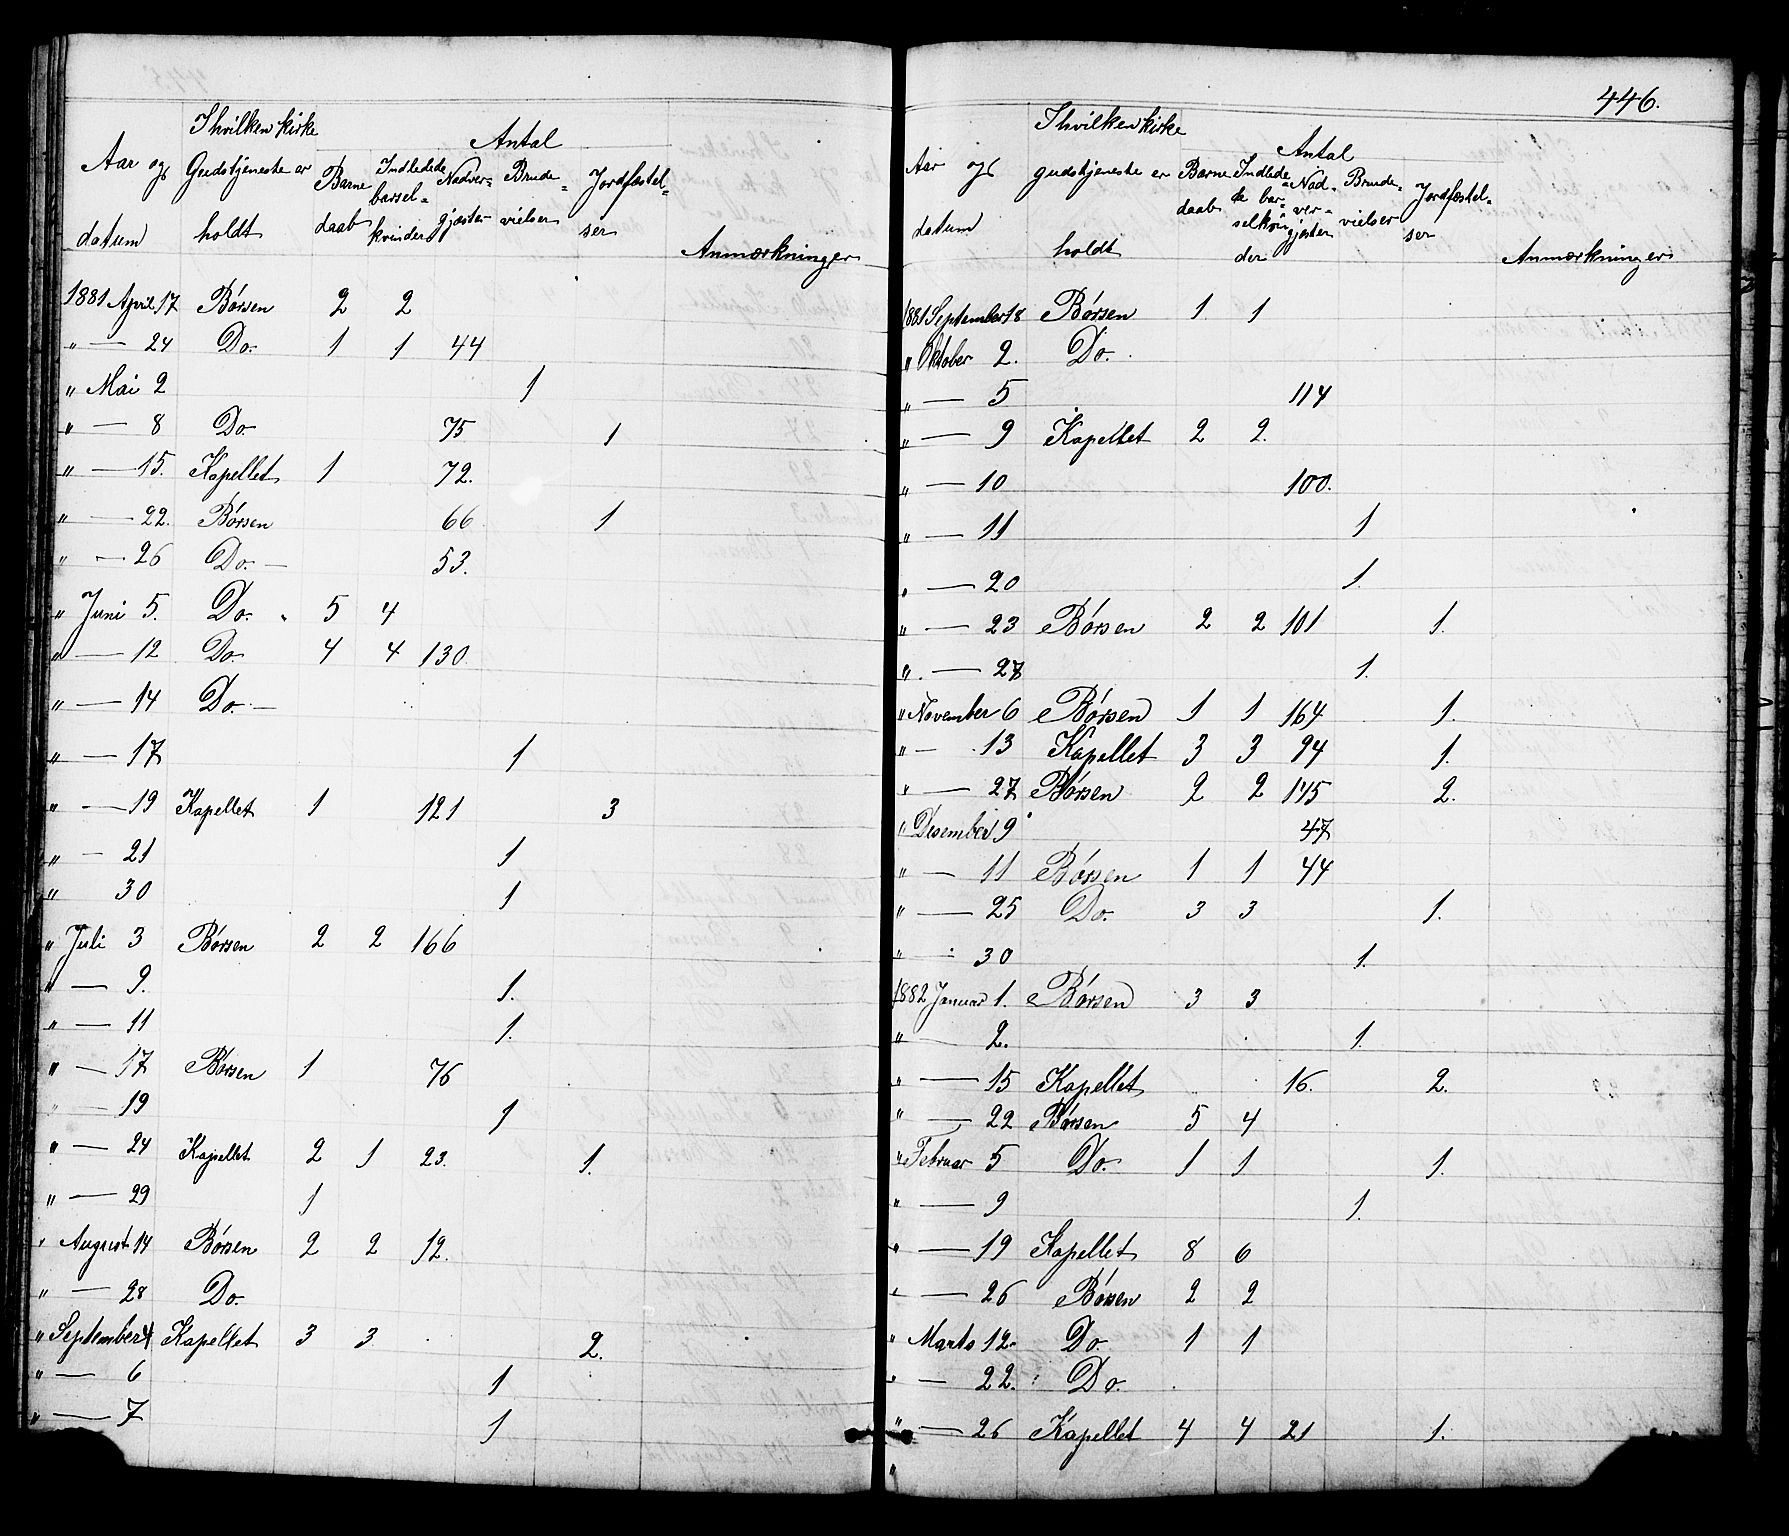 I hvilken kirke
Antal
Aar og Gudstjeneste er Barne Indledede Nadver= Brude= Jordfæstel=
barsel=
datum holdt daab kvinder gjæster vielser ser Anmærkninger
1881 April 17 Børsen 2 2
" — 24 Do. 1 1 44
" Mai 2 1
" — 8 Do. 75 1
" — 15. Kapellet 1 72.
" — 22. Børsen 66 1
" — 26 Do. — 53.
" Juni 5. Do. 5 4
" — 12 Do. 4 4 130.
" — 14 Do. —
" — 17 1
" — 19 Kapellet 1 121 3
" — 21 1
" 30 1
" Juli 3 Børsen 2 2 166
" — 9. 1.
" — 11 1.
" — 17 Børsen 1 76
" — 19 1
" — 24 Kapellet 2 1 23. 1.
" — 29 1
" August 14 Børsen 2 2 12.
" — 28 Do.
" September 4 Kapellet 3 3 2.
" — 6 1
" — 7 1
446.
I hvilken kirke
Antal
Aar og gudstjeneste er Barne Indlede Nad= Brude= Jordfæstel=
de bar= ver=
datum holdt daab selkvin gjæster vielser ser Anmærkninger
der
1881 September 18 Børsen 1 1
" Oktober 2. Do.
" — 5 114
" — 9 Kapellet 2 2.
" — 10 100.
" — 11 1
" — 20 1.
" — 23 Børsen 2 2 101 1.
" — 27 1.
" November 6 Børsen 1 1 164 1.
" — 13 Kapellet 3 3 94 1.
" — 27 Børsen 2 2 145 2.
" Desember 9 47
" — 11 Børsen 1 1 44
" — 25 Do. 3 3 1.
" — 30 1.
1882 Januar 1. Børsen 3 3
" 2. 1.
" — 15 Kapellet 16. 2.
" — 22 Børsen 5 4
" Februar 5 Do. 1 1 1.
" — 9 1.
" — 19 Kapellet 8 6
" — 26 Børsen 2 2
" Marts 12. Do. 1 1
" — 22. Do.
" — 26 Kapellet 4 4 21 1.
"